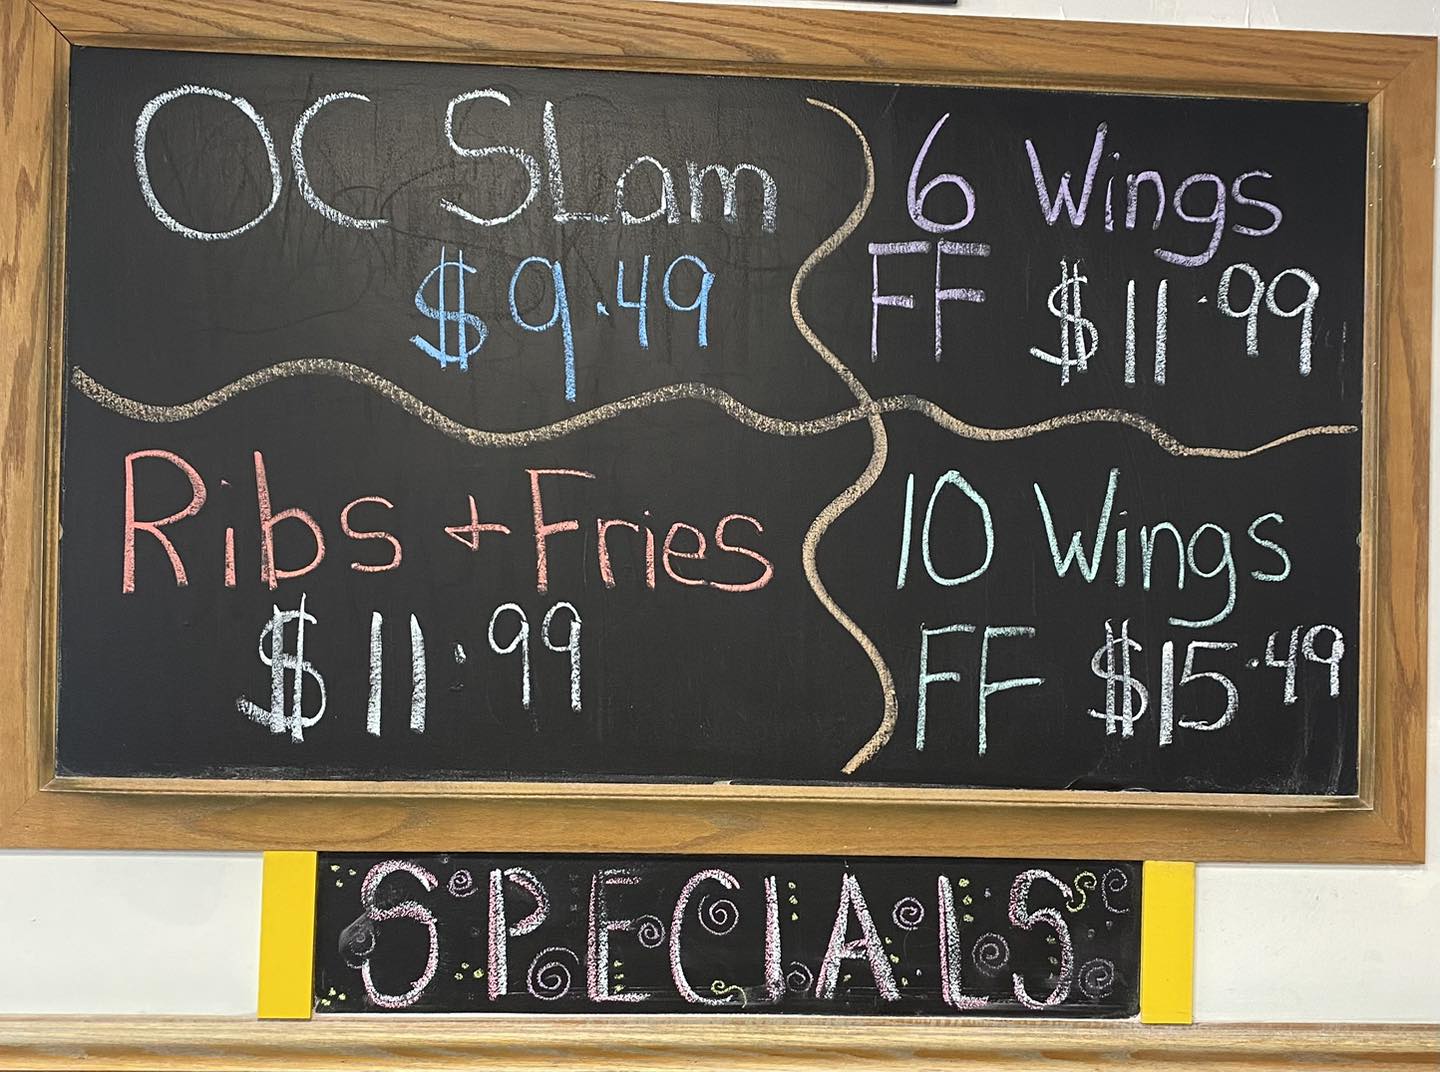 OC SLam
$9.49
6 Wings
FF $11.99
Ribs + Fries
$11.99
10 Wings
FF $15.49
SPECIALS